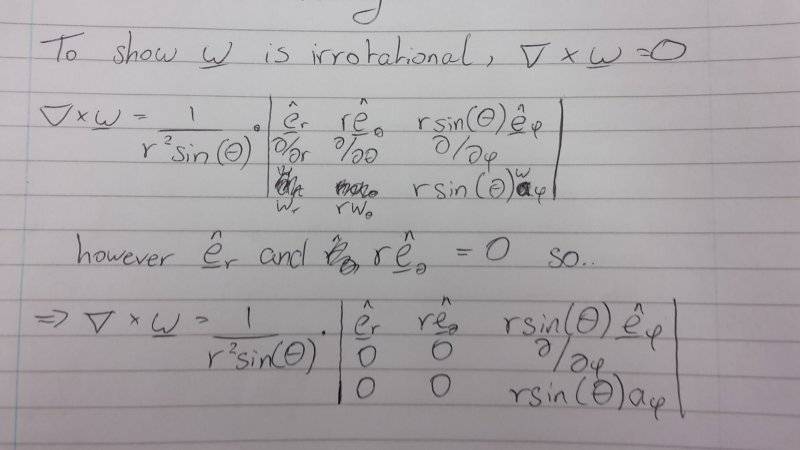 To show w is irrotational, ∇ × w = 0
∇×w = 1 / r²sin(θ) · | ê_r rê_θ rsin(θ) ê_φ |
| ∂/∂r ∂/∂θ ∂/∂φ |
| w_r rw_θ rsin(θ) w_φ |
however ê_r and rê_θ = 0 so..
⇒ ∇ × w = 1 / r²sin(θ) · | ê_r rê_θ rsin(θ) ê_φ |
| 0 0 ∂/∂φ |
| 0 0 rsin(θ)a_φ |